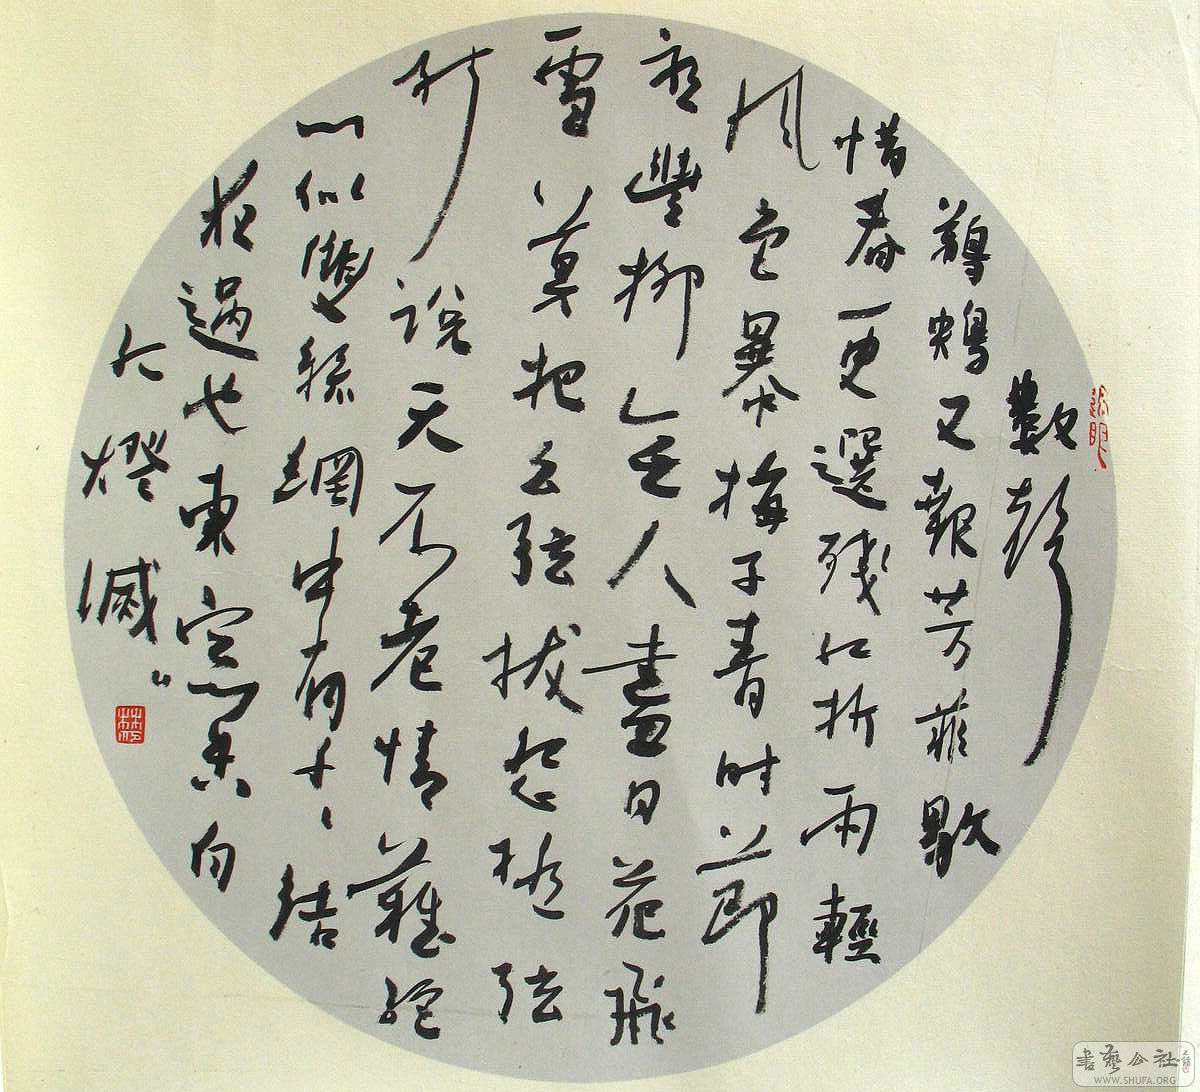 數聲
鶗鴂又報芳菲歇
惜春更選殘紅折雨輕
風色暴梅子青時節
永豐柳無人盡日花飛
雪莫把幺弦撥怨極弦
能說天不老情難絕
心似雙絲網中有千〻結
夜過也東窗未白
燈滅
書藝公社
WWW.SHUFA.ORG